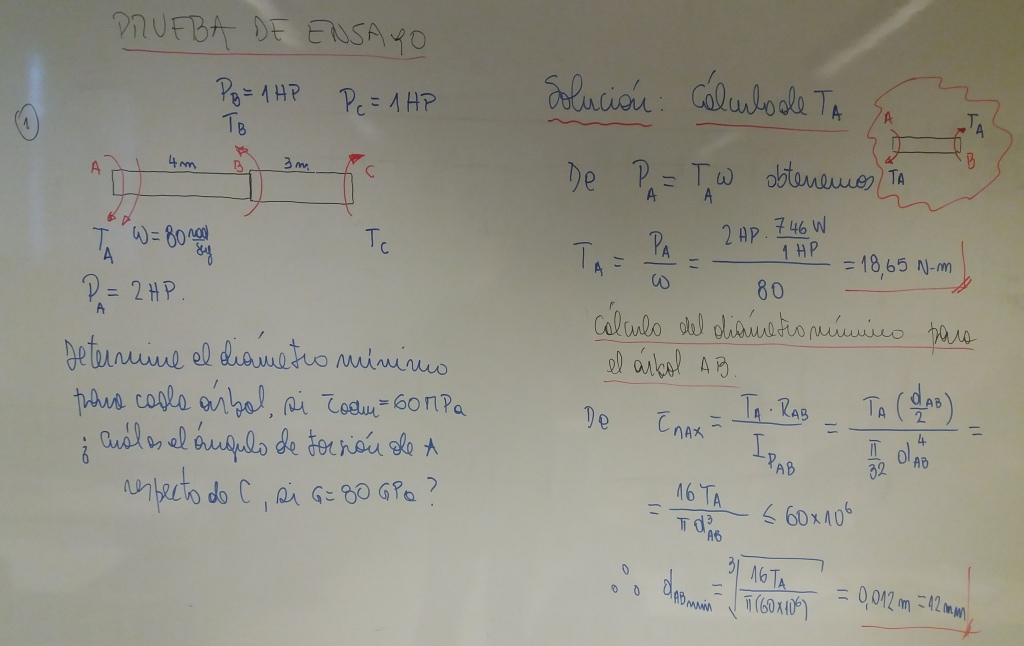 PRUEBA DE ENSAYO
1
P_B = 1 HP
P_C = 1 HP
T_B
A 4 m B 3 m C
T_A ω = 80 rad/sg
T_C
P_A = 2 HP.
Determine el diámetro mínimo
para cada árbol, si τ_adm = 60 MPa
¿ Cuál es el ángulo de torsión de A
respecto de C, si G = 80 GPa ?
Solución: Cálculo de T_A
A T_A
T_A B
De P_A = T_A ω obtenemos
T_A = P_A / ω = (2 HP · 746 W / 1 HP) / 80 = 18,65 N-m
Cálculo del diámetro mínimo para
el árbol AB.
De τ_MAX = T_A · R_AB / I_P_AB = T_A (d_AB / 2) / (π/32 d_AB^4) =
= 16 T_A / π d_AB^3 ≤ 60×10^6
∴ d_AB min = ∛(16 T_A / π(60×10^6)) = 0,012 m = 12 mm